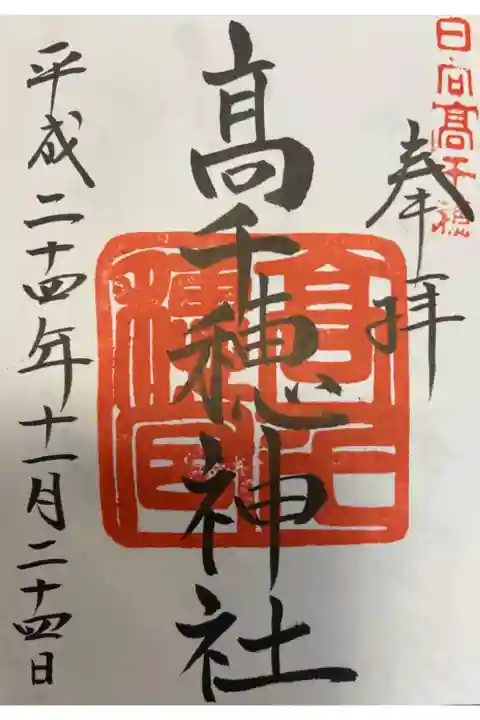 日向高千穂
奉拝
高千穂神社
平成二十四年十一月二十四日